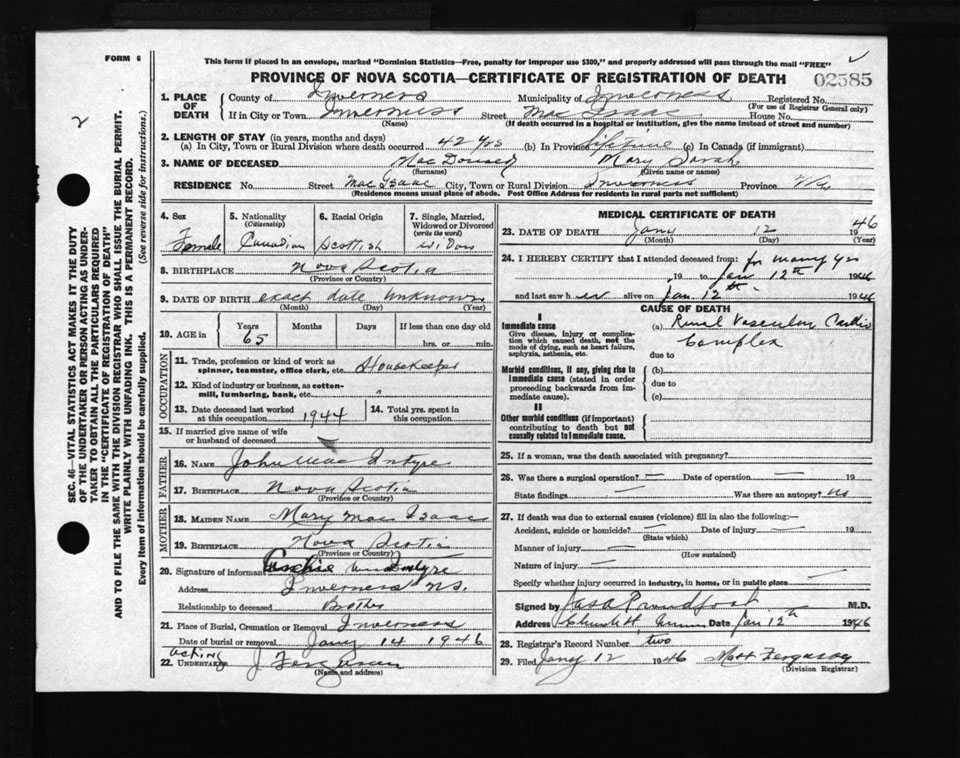 FORM 6
This form if placed in an envelope, marked "Dominion Statistics—Free, penalty for improper use $300," and properly addressed will pass through the mail "FREE"
PROVINCE OF NOVA SCOTIA—CERTIFICATE OF REGISTRATION OF DEATH
02585
2
SEC. 46—VITAL STATISTICS ACT MAKES IT THE DUTY
OF THE UNDERTAKER OR PERSON ACTING AS UNDER-
TAKER TO OBTAIN ALL THE PARTICULARS REQUIRED
IN THE "CERTIFICATE OF REGISTRATION OF DEATH"
AND TO FILE THE SAME WITH THE DIVISION REGISTRAR WHO SHALL ISSUE THE BURIAL PERMIT.
WRITE PLAINLY WITH UNFADING INK. THIS IS A PERMANENT RECORD.
Every item of information should be carefully supplied. (See reverse side for instructions.)
1. PLACE OF DEATH County of Inverness Municipality of Inverness Registered No.
(For use of Registrar General only)
If in City or Town Inverness Street Mac Isaac House No.
(Name) (If death occurred in a hospital or institution, give the name instead of street and number)
2. LENGTH OF STAY (in years, months and days)
(a) In City, Town or Rural Division where death occurred 42 yrs (b) In Province lifetime (c) In Canada (if immigrant)
3. NAME OF DECEASED Mac Donald Mary Sarah
(Surname) (Given name or names)
RESIDENCE No. Street Mac Isaac City, Town or Rural Division Inverness Province N.S.
(Residence means usual place of abode. Post Office Address for residents in rural parts not sufficient)
4. Sex Female
5. Nationality (Citizenship) Canadian
6. Racial Origin Scottish
7. Single, Married, Widowed or Divorced (write the word) Widow
8. BIRTHPLACE Nova Scotia
(Province or Country)
9. DATE OF BIRTH exact date unknown
(Month) (Day) (Year)
10. AGE in Years 65 Months Days If less than one day old
hrs. or min.
OCCUPATION
11. Trade, profession or kind of work as spinner, teamster, office clerk, etc. Housekeeper
12. Kind of industry or business, as cotton-mill, lumbering, bank, etc. "
13. Date deceased last worked at this occupation 1944
14. Total yrs. spent in this occupation
15. If married give name of wife or husband of deceased
FATHER
16. NAME John Mac Intyre
17. BIRTHPLACE Nova Scotia
(Province or Country)
MOTHER
18. MAIDEN NAME Mary Mac Isaac
19. BIRTHPLACE Nova Scotia
(Province or Country)
20. Signature of informant Archie McIntyre
Address Inverness N.S.
Relationship to deceased Brother
21. Place of Burial, Cremation or Removal Inverness
Date of burial or removal Jany 14 1946
acting
22. UNDERTAKER J Ferguson
(Name and address)
MEDICAL CERTIFICATE OF DEATH
23. DATE OF DEATH Jany 12 1946
(Month) (Day) (Year)
24. I HEREBY CERTIFY that I attended deceased from: for many yrs
, 19 to Jan 12th 1946
and last saw her alive on Jan 12th 1946
CAUSE OF DEATH
I
Immediate cause
Give disease, injury or complication which caused death, not the mode of dying, such as heart failure, asphyxia, asthenia, etc.
(a) Renal Vascular Cardio
Complex
due to
Morbid conditions, if any, giving rise to immediate cause (stated in order proceeding backwards from immediate cause).
(b)
due to
(c)
II
Other morbid conditions (if important) contributing to death but not causally related to immediate cause.
25. If a woman, was the death associated with pregnancy?
26. Was there a surgical operation? — Date of operation — 19
State findings — Was there an autopsy? no
27. If death was due to external causes (violence) fill in also the following:—
Accident, suicide or homicide? — Date of injury — 19
(State which)
Manner of injury —
(How sustained)
Nature of injury —
Specify whether injury occurred in industry, in home, or in public place —
Signed by Jas A Proudfoot M.D.
Address Date Jan 12th 1946
28. Registrar's Record Number two
29. Filed Jany 12 1946 Matt Ferguson
(Division Registrar)